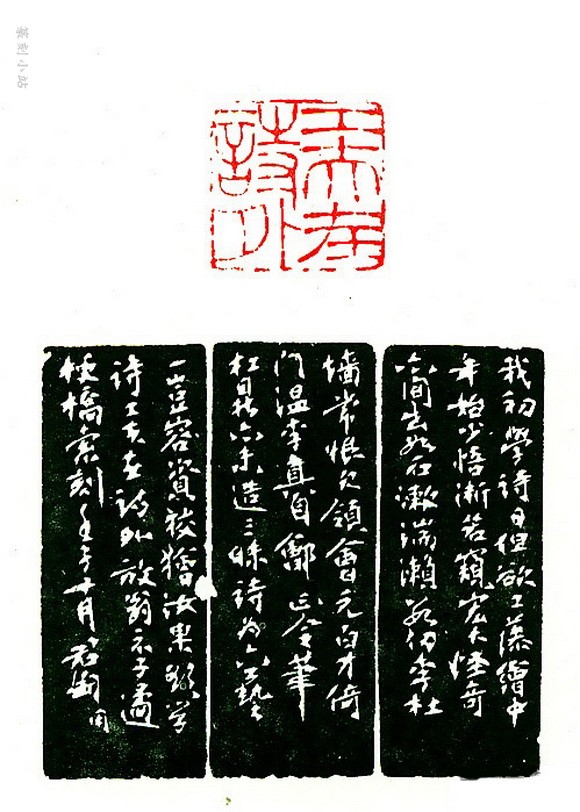 篆刻小站
工夫在
詩外
我初學詩日但欲工藻繪中
年始少悟漸若窺宏大怪奇
亦間出如石漱湍瀨數仞李杜
牆常恨欠領會元白才倚
門溫李真自鄶正令筆
扛鼎亦未造三昧詩為六藝
一豈容資狡獪汝果欲學
詩工夫在詩外放翁示子遹
橋刻壬子十月君匋